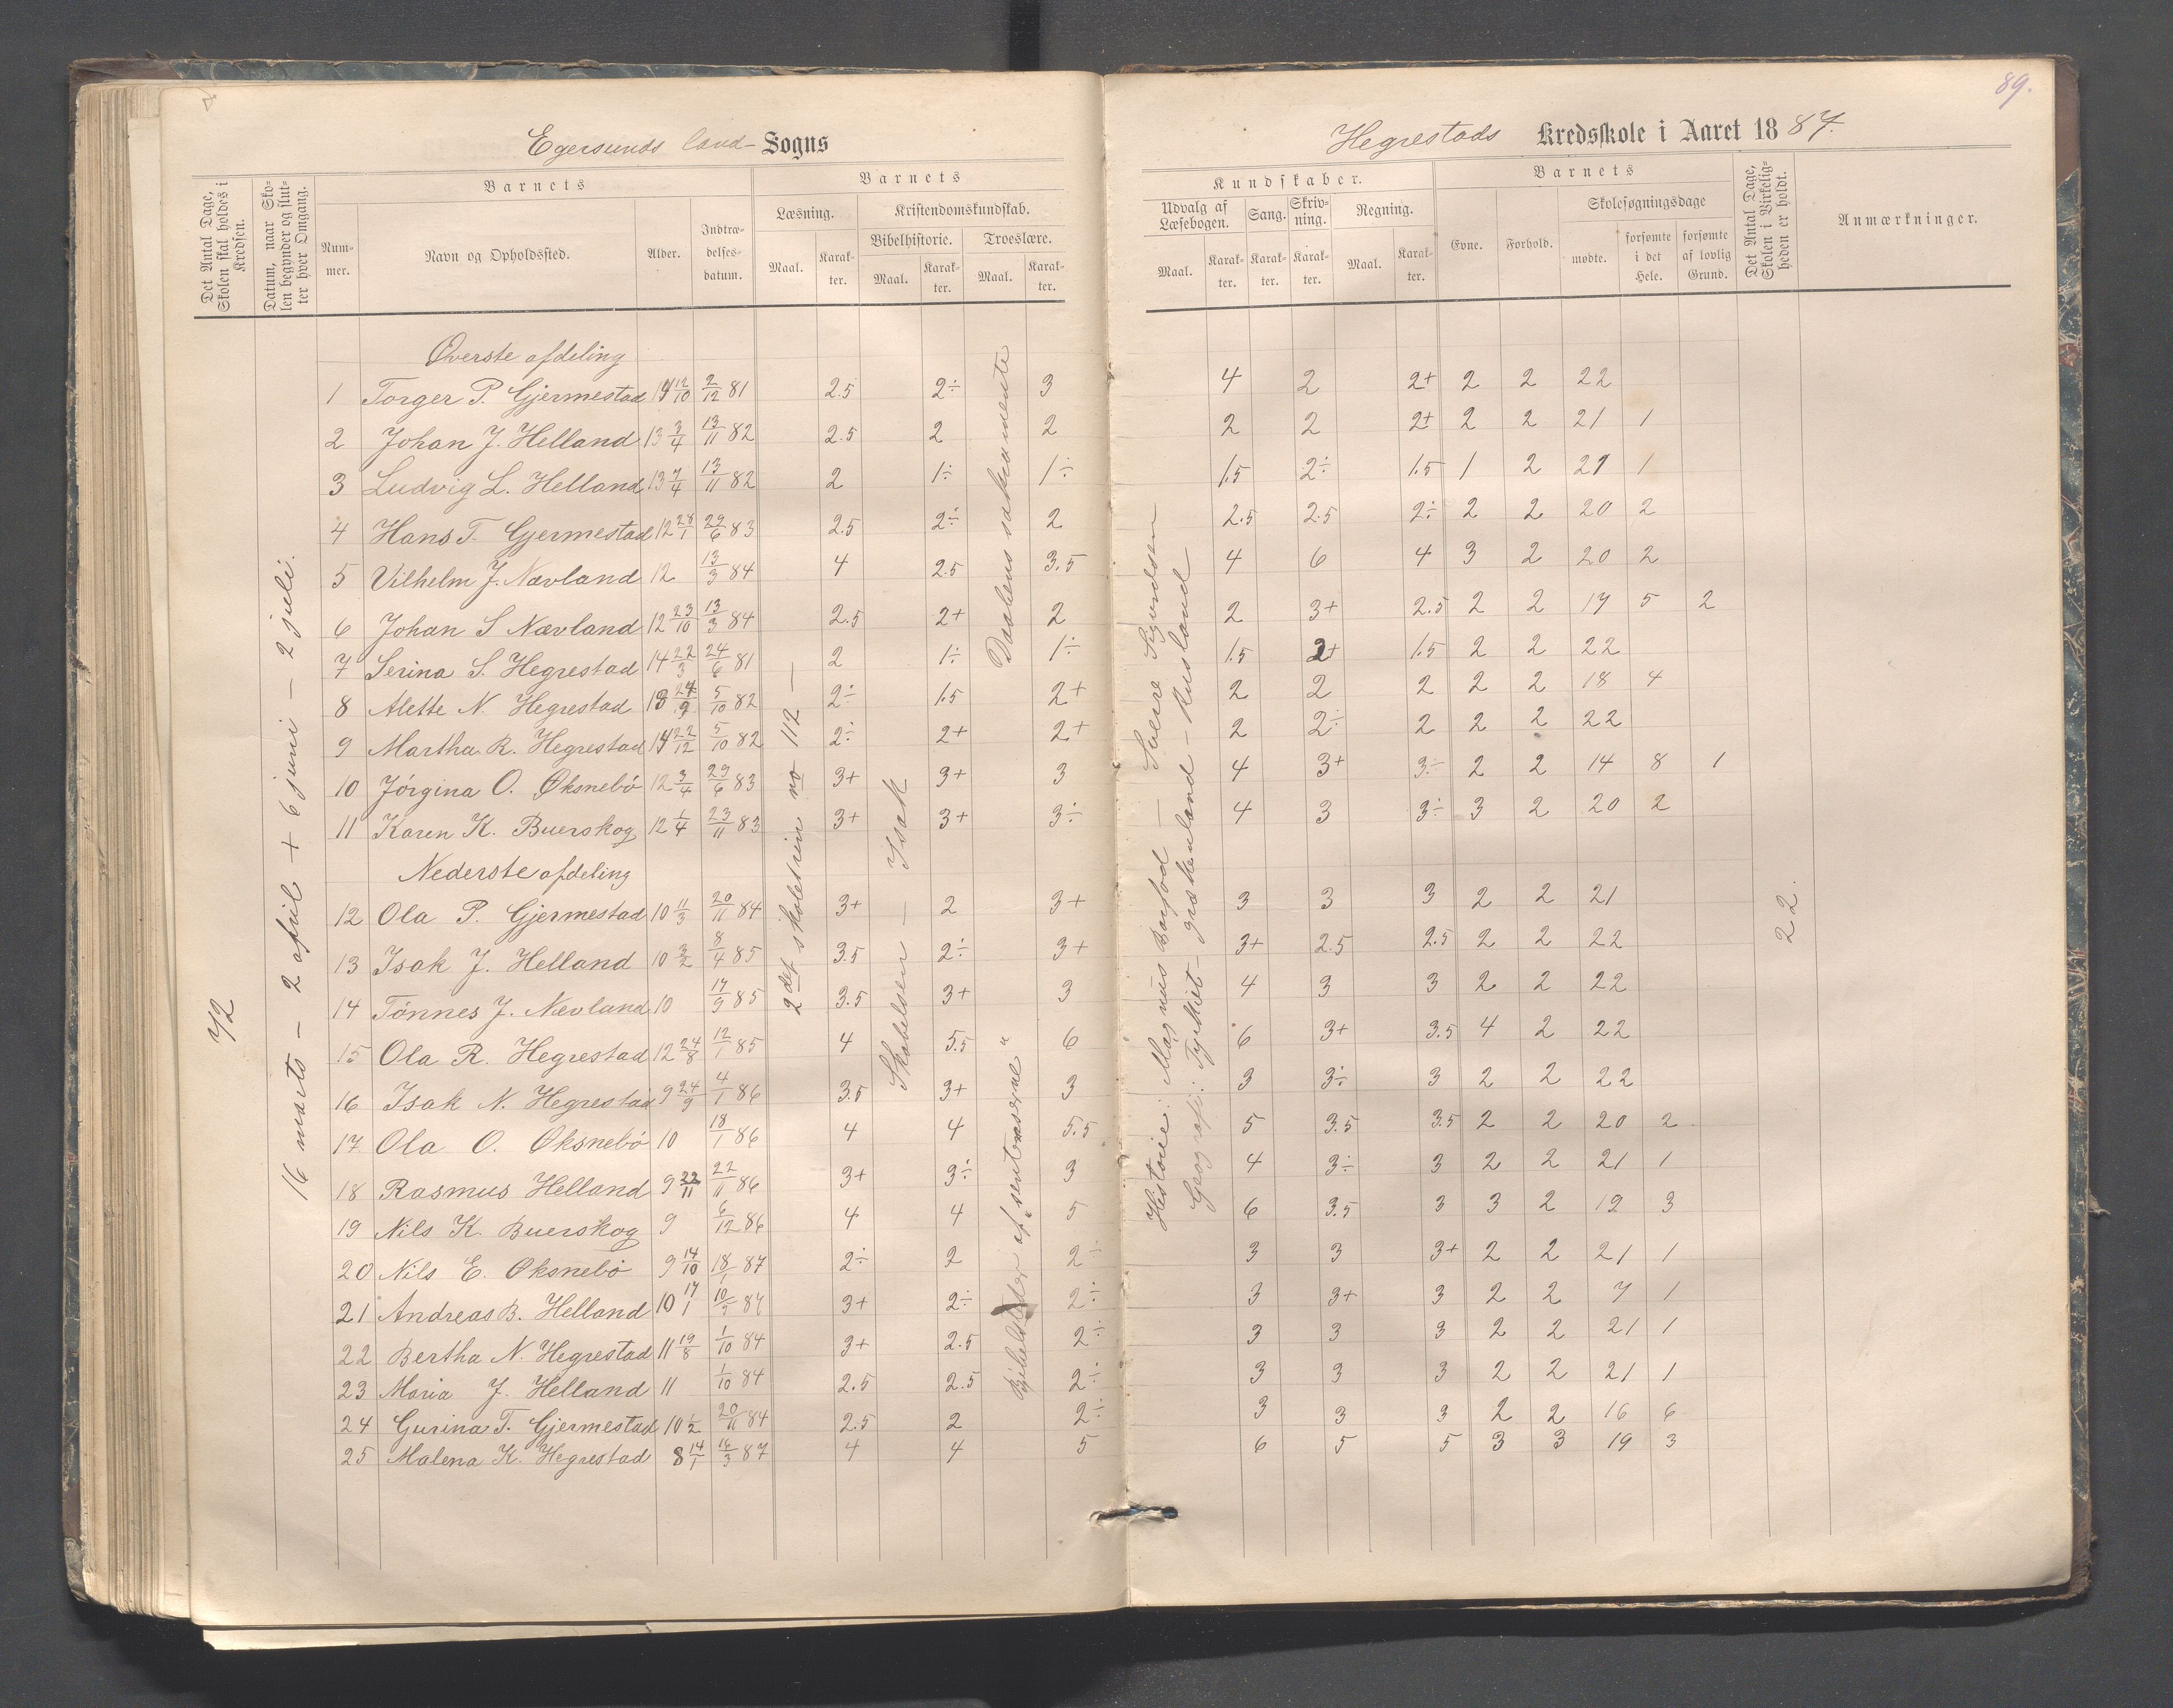 89.
Egersunds land- Sogns
Hegrestads Kredsskole i Aaret 1887.
Det Antal Dage, Skolen skal holdes i Kredsen.
Datum, naar Skolen begynder og slutter hver Omgang.
Barnets
Nummer.
Navn og Opholdssted.
Alder.
Indtrædelsesdatum.
Barnets
Læsning.
Maal.
Karakter.
Kristendomskundskab.
Bibelhistorie.
Maal.
Karakter.
Troeslære.
Maal.
Karakter.
Kundskaber.
Udvalg af Læsebogen.
Maal.
Karakter.
Sang.
Karakter.
Skrivning.
Karakter.
Regning.
Maal.
Karakter.
Barnets
Evne.
Forhold.
Skolesøgningsdage
mødte.
forsømte i det Hele.
forsømte af lovlig Grund.
Det Antal Dage, Skolen i Virkeligheden er holdt.
Anmærkninger.
72
16 marts - 2 april + 6 juni - 2 juli.
2det skoletrin no 112 —
Skabelsen — Isak
Daabens sakramente
Historie: Magnus Barfod — Sverre Sigurdsen
Geografi: Tyrkiet - grækenland - Rusland
22.
Øverste afdeling
1 Torger P. Gjermestad 14 12/10 2/12 81 2.5 2÷ 3 4 2 2+ 2 2 22
2 Johan J. Helland 13 3/4 13/11 82 2.5 2 2 2 2 2+ 2 2 21 1
3 Ludvig L. Helland 13 7/4 13/11 82 2 1÷ 1÷ 1.5 2÷ 1.5 1 2 21 1
4 Hans T. Gjermestad 12 28/1 29/6 83 2.5 2÷ 2 2.5 2.5 2÷ 2 2 20 2
5 Vilhelm J. Nævland 12 13/3 84 4 2.5 3.5 4 6 4 3 2 20 2
6 Johan S Nævland 12 23/10 13/3 84 2.5 2+ 2 2 3+ 2.5 2 2 17 5 2
7 Serina S. Hegrestad 14 22/3 24/6 81 2 1÷ 1÷ 1.5 2+ 1.5 2 2 22
8 Alette N. Hegrestad 13 24/9 5/10 82 2÷ 1.5 2+ 2 2 2 2 2 18 4
9 Martha R. Hegrestad 14 22/12 5/10 82 2÷ 2+ 2+ 2 2÷ 2 2 2 22
10 Jørgina O. Øksnebø 12 3/4 29/6 83 3+ 3+ 3 4 3+ 3÷ 2 2 14 8 1
11 Karen K. Buerskog 12 1/4 23/11 83 3+ 3+ 3÷ 4 3 3÷ 3 2 20 2
Nederste afdeling
12 Ola P. Gjermestad 10 11/3 20/11 84 3+ 2 3+ 3 3 3 2 2 21
13 Isak J. Helland 10 3/2 8/4 85 3.5 2÷ 3+ 3+ 2.5 2.5 2 2 22
14 Tønnes J. Nævland 10 17/9 85 3.5 3+ 3 4 3 3 2 2 22
15 Ola R. Hegrestad 12 24/8 12/1 85 4 5.5 6 6 3+ 3.5 4 2 22
16 Isak N. Hegrestad 9 24/9 4/1 86 3.5 3+ 3 3 3÷ 3 2 2 22
17 Ola O. Øksnebø 10 18/1 86 4 4 5.5 5 3.5 3.5 2 2 20 2
18 Rasmus Helland 9 22/11 22/11 86 3+ 3÷ 3 4 3÷ 3 2 2 21 1
19 Nils K. Buerskog 9 6/12 86 4 4 5 6 3.5 3 3 2 19 3
20 Nils E. Øksnebø 9 14/10 18/1 87 2÷ 2 2÷ 3 3 3+ 2 2 21 1
21 Andreas B. Helland 10 17/1 10/9 84 3+ 2÷ 2÷ 3 3+ 3 2 2 7 1
22 Bertha N. Hegrestad 11 19/8 1/10 84 3+ 2.5 2÷ 3 3 3 2 2 21 1
23 Maria J. Helland 11 1/10 84 2.5 2.5 2÷ 3 3 3 2 2 21 1
24 Gurina T. Gjermestad 10 1/2 20/11 84 2.5 2 2÷ 3 3 3 2 2 16 6
25 Malena K. Hegrestad 8 14/1 16/3 87 4 4 5 6 5 5 3 3 19 3